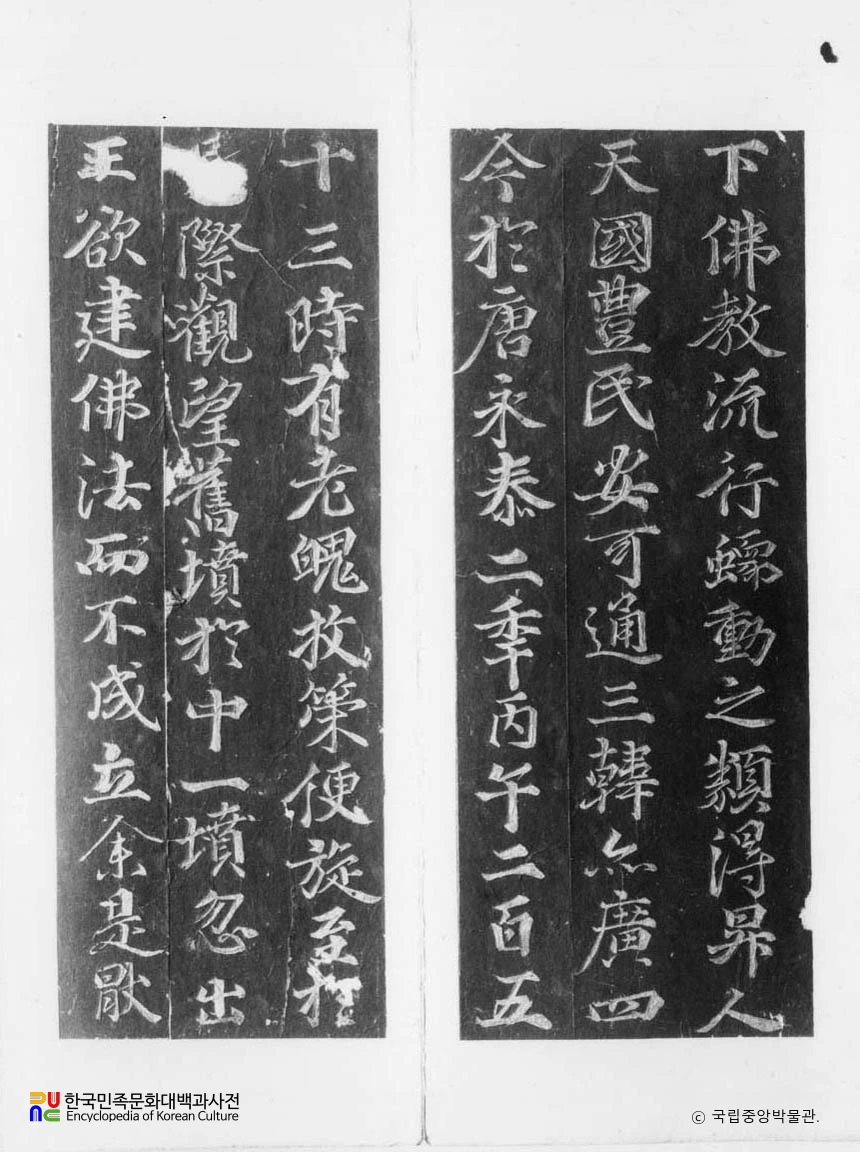 下佛教流行蠕動之類得昇人
天國豊民安可通三韓亦廣四
今於唐永泰二秊丙午二百五
十三時有老魄扙策便旋至於
際觀望舊墳於中一墳忽出
王欲建佛法而不成立余是猒
한국민족문화대백과사전
Encyclopedia of Korean Culture
ⓒ 국립중앙박물관.